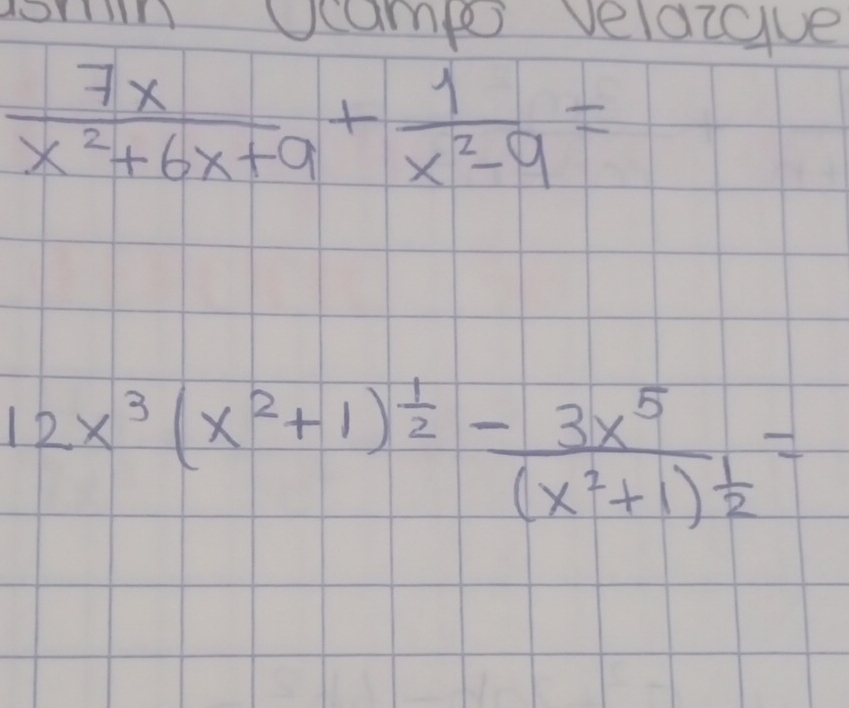 Ocampo Velazque
7x/(x²+6x+9) + 1/(x²-9) =
12x³(x²+1)^(1/2) - 3x⁵/(x²+1)^(1/2) =